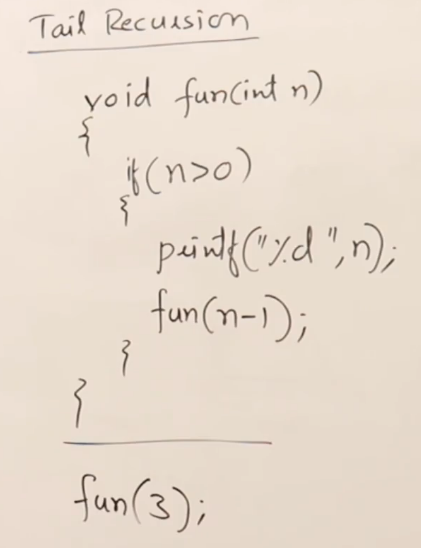 Tail Recursion
void fun(int n)
{
if(n>0)
{
printf("%d",n);
fun(n-1);
}
}
fun(3);